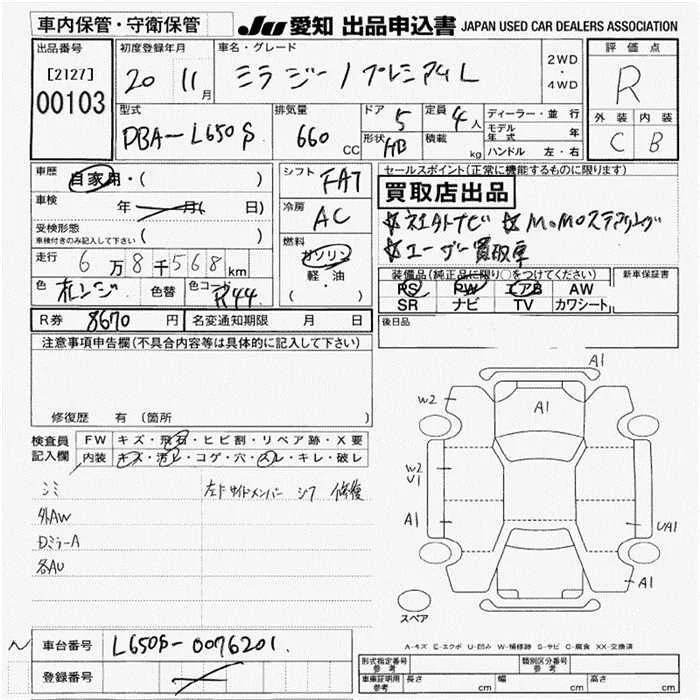 車内保管・守衛保管
JU 愛知 出品申込書 JAPAN USED CAR DEALERS ASSOCIATION
出品番号
[2127]
00103
初度登録年月
20 11月
車名・グレード
ミラジーノプレミアムL
2WD
・
4WD
評価点
R
外装 内装
C B
型式
DBA-L650S
排気量
660 CC
ドア 5
形状 HB
定員 4人
積載 kg
ディーラー・並行
モデル年式 年
ハンドル 左・右
車歴
自家用・( )
車検
年 月( 日)
受検形態
車検付きのみ記入して下さい ( )
走行
6万8千568km
色 オレンジ 色替 色コード R44
シフト FAT
冷房 AC
燃料
ガソリン
軽・油
( )
セールスポイント(正常に機能するものに限ります)
買取店出品
☆社外ナビ ☆MOMOステアリング
☆ユーザー買取車
装備品(純正品に限り○をつけてください) 新車保証書
PS PW エアB AW
SR ナビ TV カワシート
後日品
R券 8670円 名変通知期限 月 日
注意事項申告欄(不具合内容等は具体的に記入して下さい)
修復歴 有(箇所 )
検査員記入欄
FW キズ・飛石・ヒビ割・リペア跡・X要
内装 キズ・汚レ・コゲ・穴・スレ・キレ・破レ
シミ
外AW
DミラーA
各AU
左F サイドメンバー シワ 修復
A1
W2
A1
W2
U1
A1
UA1
A1
スペア
A-キズ E-エクボ U-凹み W-補修跡 S-サビ C-腐食 XX-交換済
車台番号 L650S-0076201
登録番号
形式指定番号 参考
類別区分番号 参考
車庫証明用 参考 長さ cm 幅 cm 高さ cm